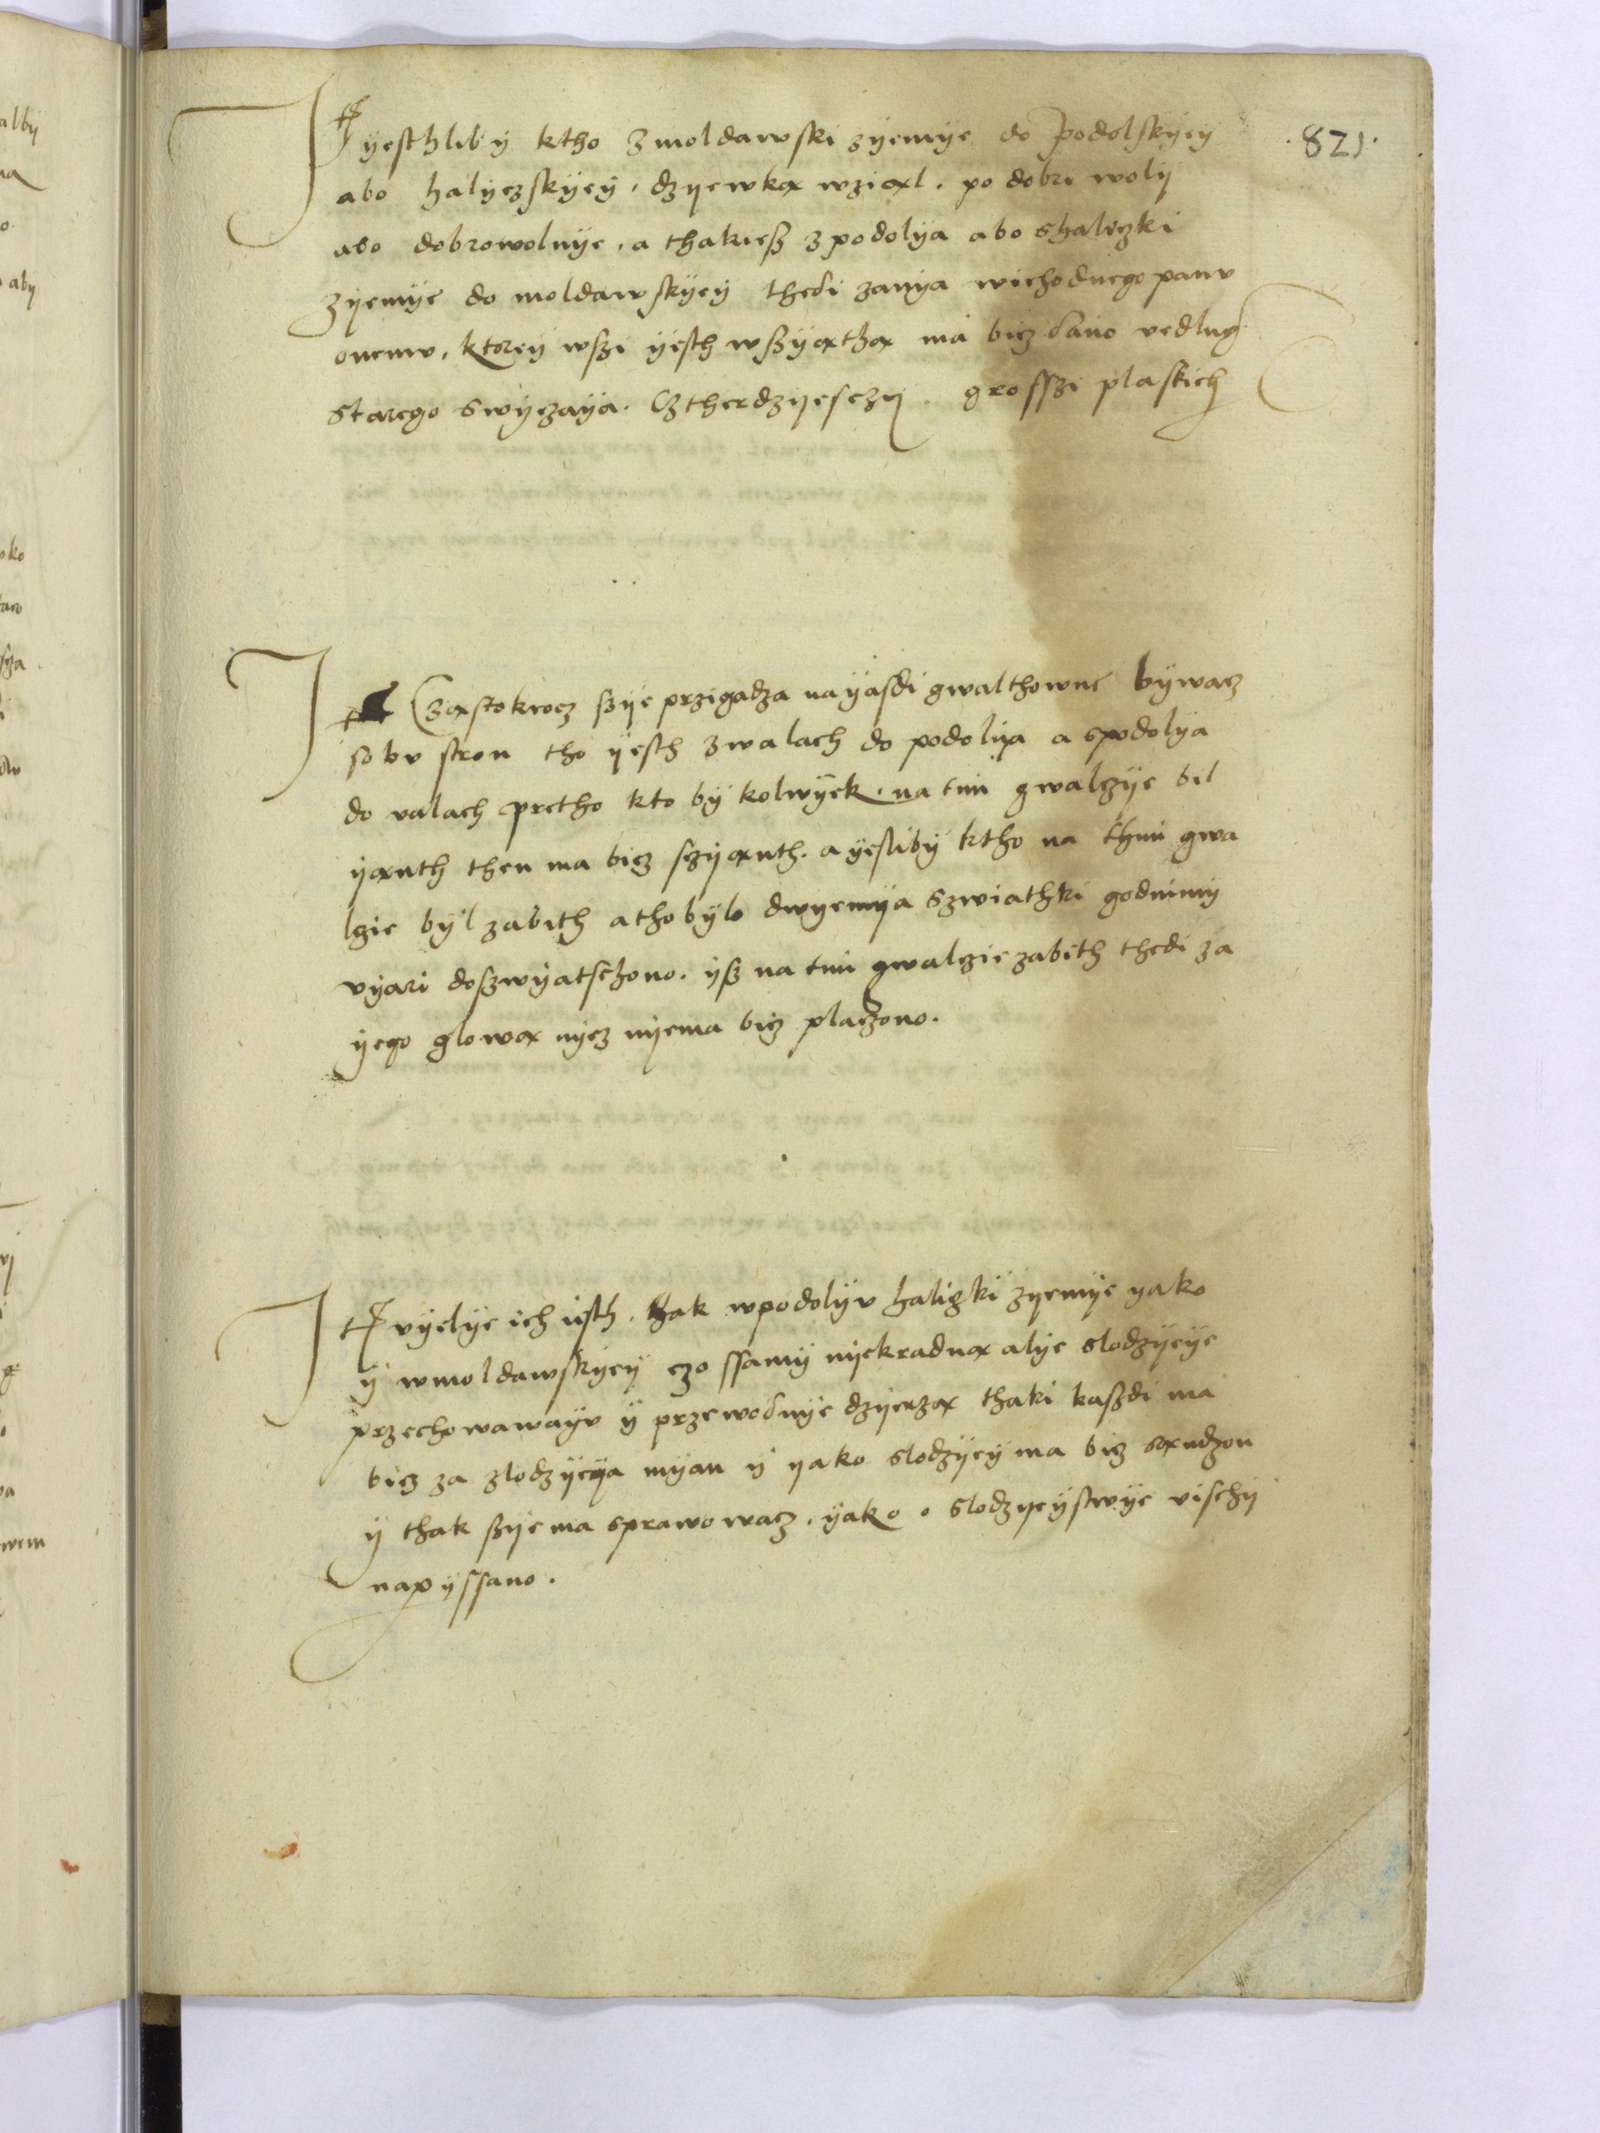 ·821·
It yeschliby ktho z moldawski zyemye do Podolskyey
abo halyczskyey, dzyewką wziąl. po dobri wolij
abo dobrowolnye, a thakiesz z podolya abo shaliczki
zyemye do moldawskyey thedi zanya wichodnego panv
onemv, ktorey wszi yesth wszyąthą ma bicz dano vedlug
starego swyczaya. Cztherdzyesczy. grosszi plaskich
It Cząstokrocz szye przigadza nayasdi gwalthowne bywacz
sobv stron tho yesth z walach do podolya a spodolya
do valach pretho kto by kolwyek. na tim gwalczye bil
yąnth then ma bicz sczyąnth. a yesliby ktho na thim gwa
lczie byl zabith a tho bylo dwyemya szwiathki godnimy
vyari doszwyatschono. ysz na tim gwalczie zabith thedi za
yego glową nycz nyema bicz placzono.
It vyelye ich iesth. thak wpodolyv haliczki zyemye yako
y wmoldawskyey czo ssamy nyekradną alye slodzyeye
przechowawayv y przewodnye dzyerzą thaki kaszdi ma
bicz za zlodzyeya myan y yako slodzyey ma bicz sąndzon
y thak szye ma sprawowacz. yako o slodzyeystwye vischy
napyssano.